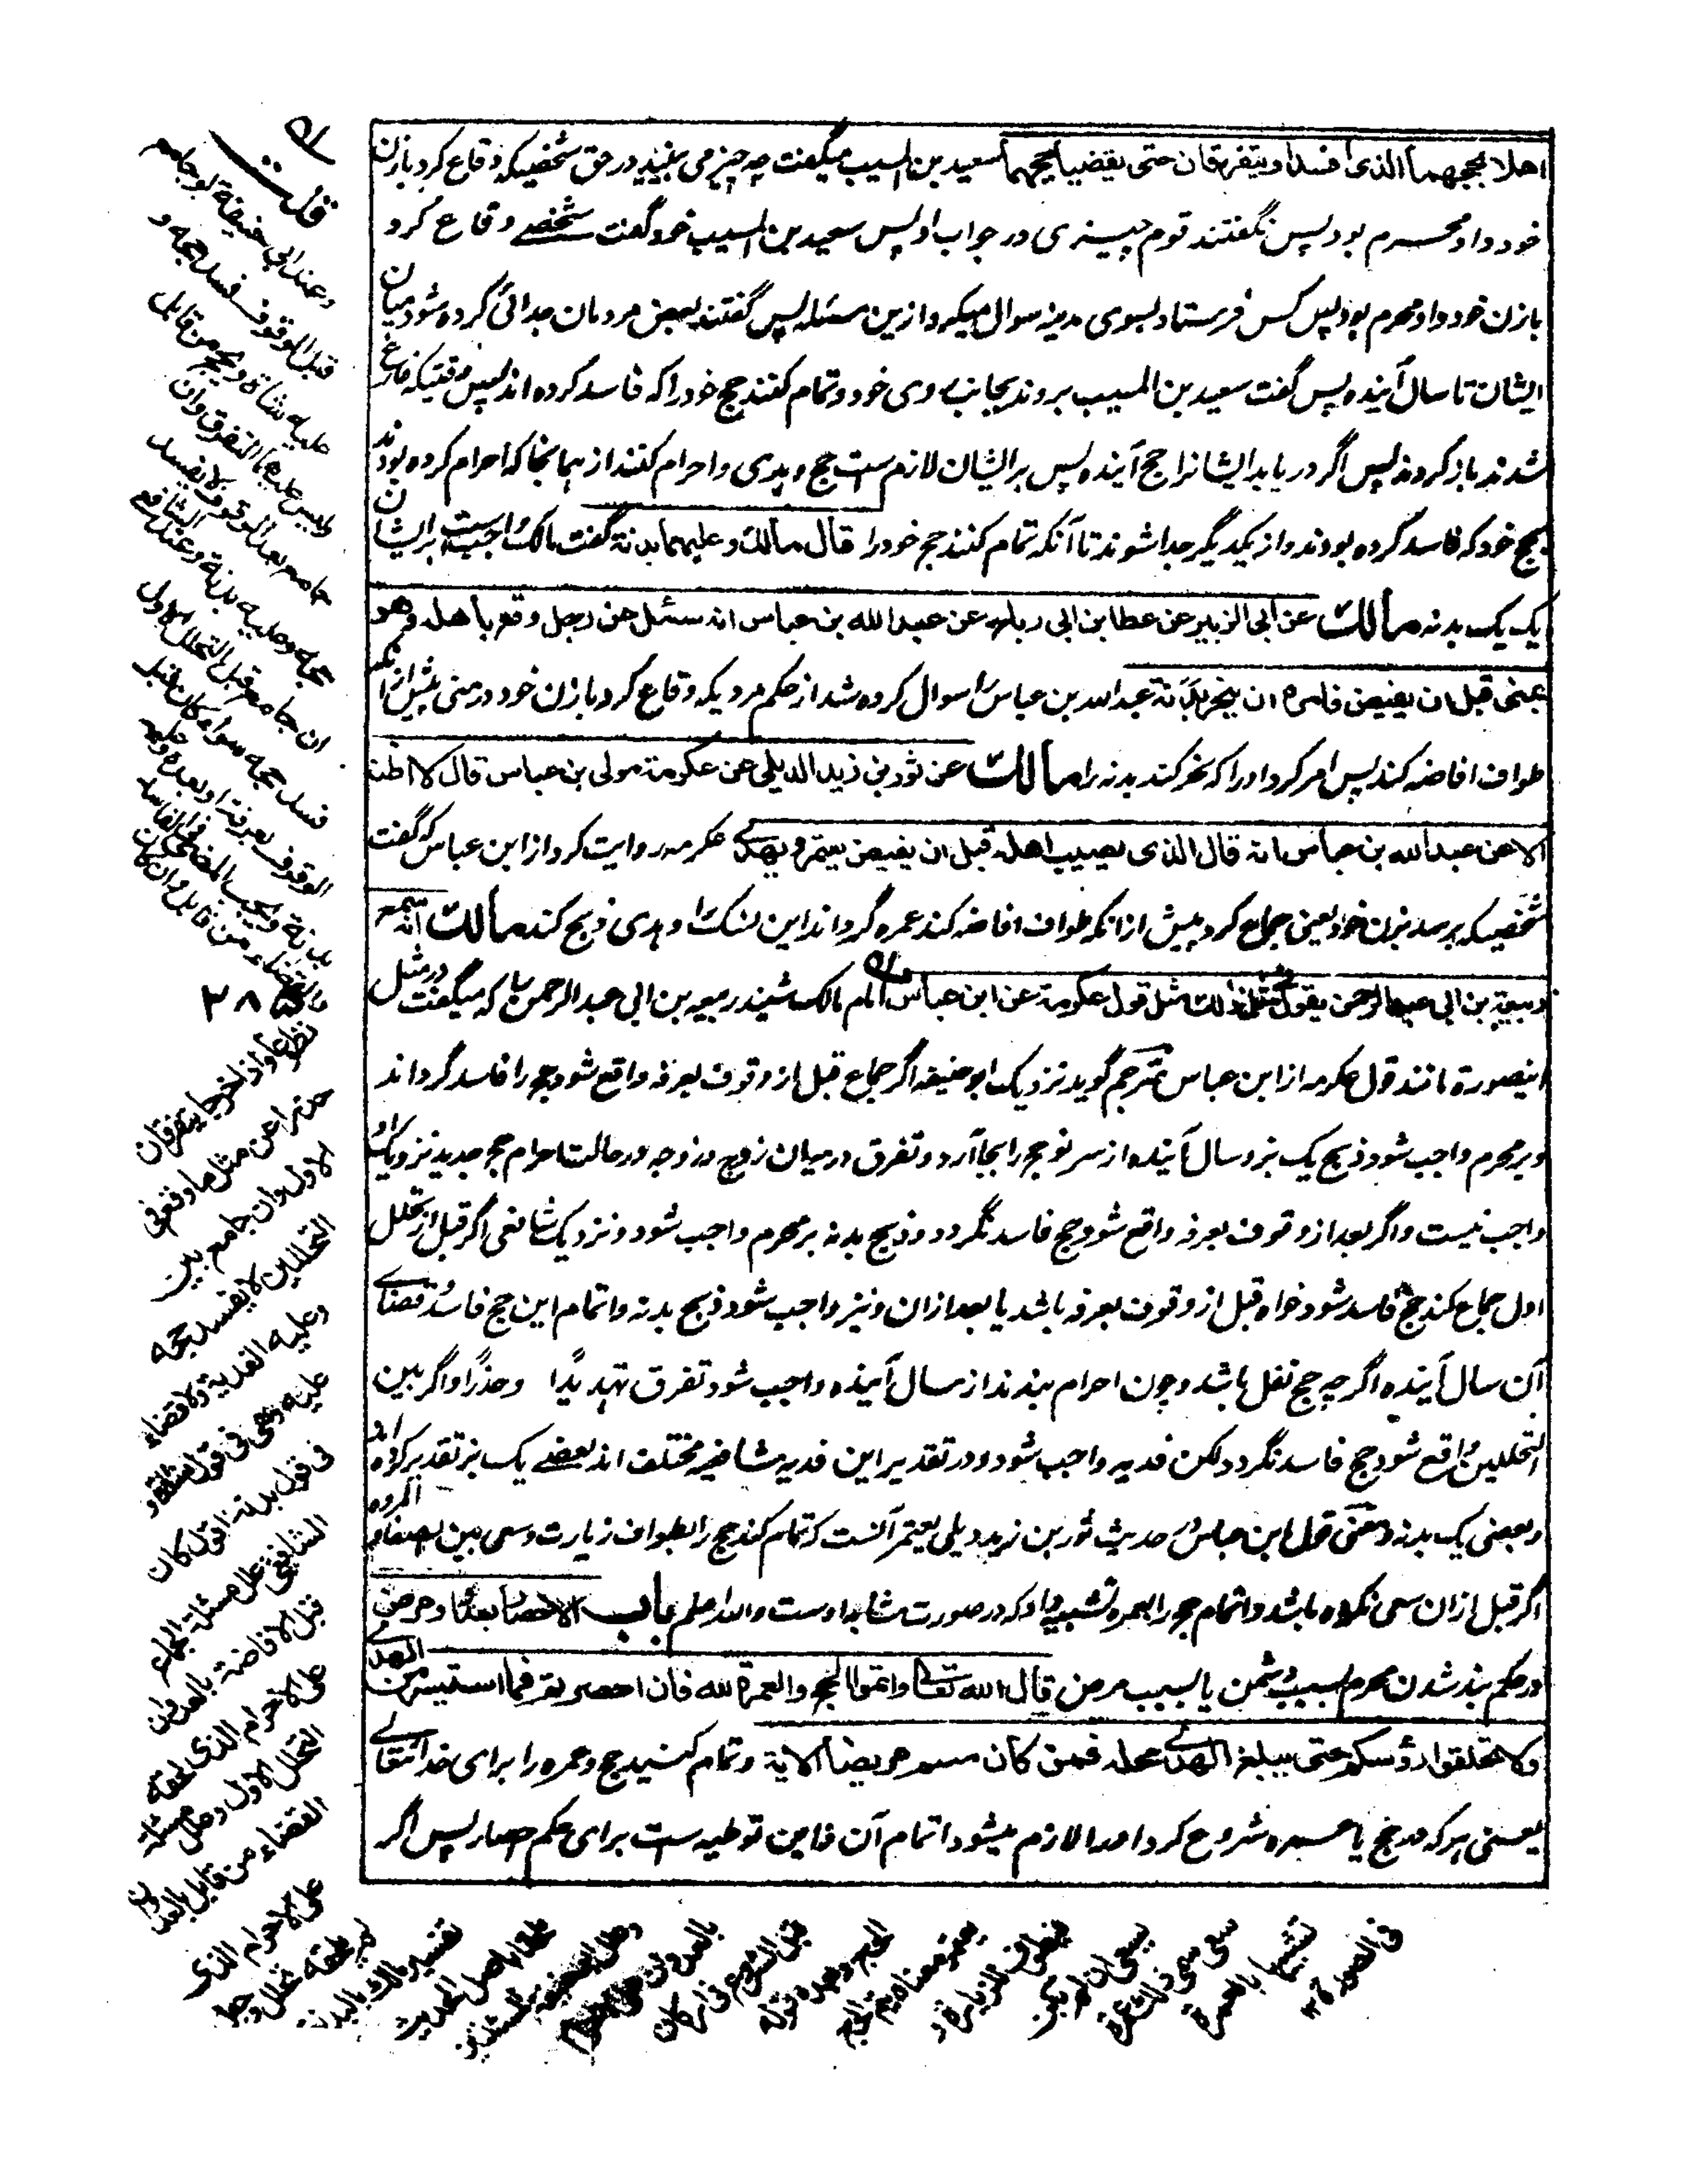 اهلا بحجهما الذى افسدا ويتفرقان حتى يقضيا حجهما سعيد بن المسيب ميگفت چه چيز مى بينيد در حق شخصيكه وقاع كرد بازن
خود و او محرم بود پس نگفتند قوم چيزى در جواب او پس سعيد بن المسيب خود گفت شخصے وقاع كرد
بازن خود و او محرم بود پس كس فرستاد بسوى مدينه سوال ميكرد ازين مسئله پس گفتند بعض مردمان جدائى كرده شود ميان
ايشان تا سال آينده پس گفت سعيد بن المسيب بروند بجانب روى خود و تمام كنند حج خود را كه فاسد كرده اند پس وقتيكه فارغ
شدند باز گردند پس اگر دريابد ايشانرا حج آينده پس بر ايشان لازم ست حج و هدى و احرام كنند از همانجا كه احرام كرده بودند
بحج خود كه فاسد كرده بودند و از يكديگر جدا شوند تا آنكه تمام كنند حج خود را قال مالك وعليهما بدنة گفت مالك واجب است بر ايشان
يك يك بدنه مالك عن ابى الزبير عن عطا بن ابى رباح عن عبد الله بن عباس انه سئل عن رجل وقع باهله وهو
بمنى قبل ان يفيض فامره ان ينحر بدنة عبد الله بن عباس را سوال كرده شد از حكم مرديكه وقاع كرد بازن خود در منى پيش از آنكه
طواف افاضه كند پس امر كرد او را كه نحر كند بدنه را مالك عن ثور بن زيد الديلى عن عكرمة مولى بن عباس قال لا اظنه
الا عن عبد الله بن عباس انه قال الذى يصيب اهله قبل ان يفيض يعتمر ويهدى عكرمه روايت كرد از ابن عباس كه گفت
شخصيكه برسد بزن خود يعنى جماع كرد پيش از انكه طواف افاضه كند عمره گرداند اين نسك را و هدى ذبح كند مالك انه سمع
ربيعة بن ابى عبد الرحمن يقول مثل ذلك مثل قول عكرمة عن ابن عباس امام مالك شنيد ربيعه بن ابى عبد الرحمن را كه ميگفت در مثل
اينصورة مانند قول عكرمه از ابن عباس مترجم گويد نزديك ابو حنيفه اگر جماع قبل از وقوف بعرفه واقع شود حج را فاسد گرداند
و بر محرم واجب شود ذبح يك بز و سال آينده از سر نو حج را بجا آرد و تفرق درميان زوج و زوجه در حالت احرام حج جديد نزديك او
واجب نيست و اگر بعد از وقوف بعرفه واقع شود حج فاسد نگردد و ذبح بدنه بر محرم واجب شود و نزديك شافعى اگر قبل از تحلل
اول جماع كند حج فاسد شود خواه قبل از وقوف بعرفه باشد يا بعد ازان و نيز واجب شود ذبح بدنه و اتمام اين حج فاسد و قضاے
آن سال آينده اگر چه حج نفل باشد و چون احرام بندند از سال آينده واجب شود تفرق تهديدًا وحذرًا و اگر بين
التحللين واقع شود حج فاسد نگردد لكن فديه واجب شود و در تقدير اين فديه شافعيه مختلف اند بعضے يك بز تقدير كرده اند
و بعضى يك بدنه و معنى قول ابن عباس در حديث ثور بن زيد ديلى يعتمر آنست كه تمام كند حج را بطواف زيارت و سعى بين الصفا والمروه
اگر قبل ازان سعى نكرده باشد و اتمام حج را بعمره تشبيه داد كه در صورت مشابه اوست والله اعلم باب الاحصار بعدو او مرض
در حكم بند شدن محرم بسبب دشمن يا بسبب مرض قال الله تعالى واتموا الحج والعمرة لله فان احصرتم فما استيسر من الهدى
ولا تحلقوا رؤسكم حتى يبلغ الهدى محله فمن كان منكم مريضا الاية و تمام كنيد حج و عمره را براى خدا تعالے
يعنى هر كه در حج يا عمره شروع كرد او را لازم ميشود اتمام آن و اين توطيه ست براى حكم احصار پس اگر
قلت
وعند ابى حنيفة لو جامع
قبل الوقوف فسد حجه و
عليه شاة ويحج من قابل
وليس عليهما التفرق وان
جامع بعد الوقوف لا يفسد
حجه وعليه بدنة وعند الشافعى
ان جامع قبل التحلل الاول
فسد حجه سواء كان قبل
الوقوف بعرفة او بعده وعليه
بدنة ويجب المضى فى الفاسد
والقضاء من قابل وان كان
تطوعا واذا خرجا يتفرقان
حذرا عن مثل ما وقع فى
الاول وان جامع بين
التحللين لا يفسد حجه
وعليه الفدية ولا قضاء
عليه وهى فى قول شاة و
فى قول بدنة اقول كان
الشافعى حمل مسئلة الجماع
قبل الافاضة بالعدوان
على الاحرام الذى لحقه
التحلل الاول وحمل مسئلة
القضاء من قابل بالعدوان
على الاحرام الذى
لم يلحقه تحلل وجعل
تفسير مالك بالبدنة
قبل الشروع فى اركان
الحج وحده قوله
يعتمر معناه يتم الحج
فيطوف للزيارة و
يسعى ان لم يكن
سعى سمى ذلك عمرة
تشبيها بالعمرة
فى الصورة ١٢